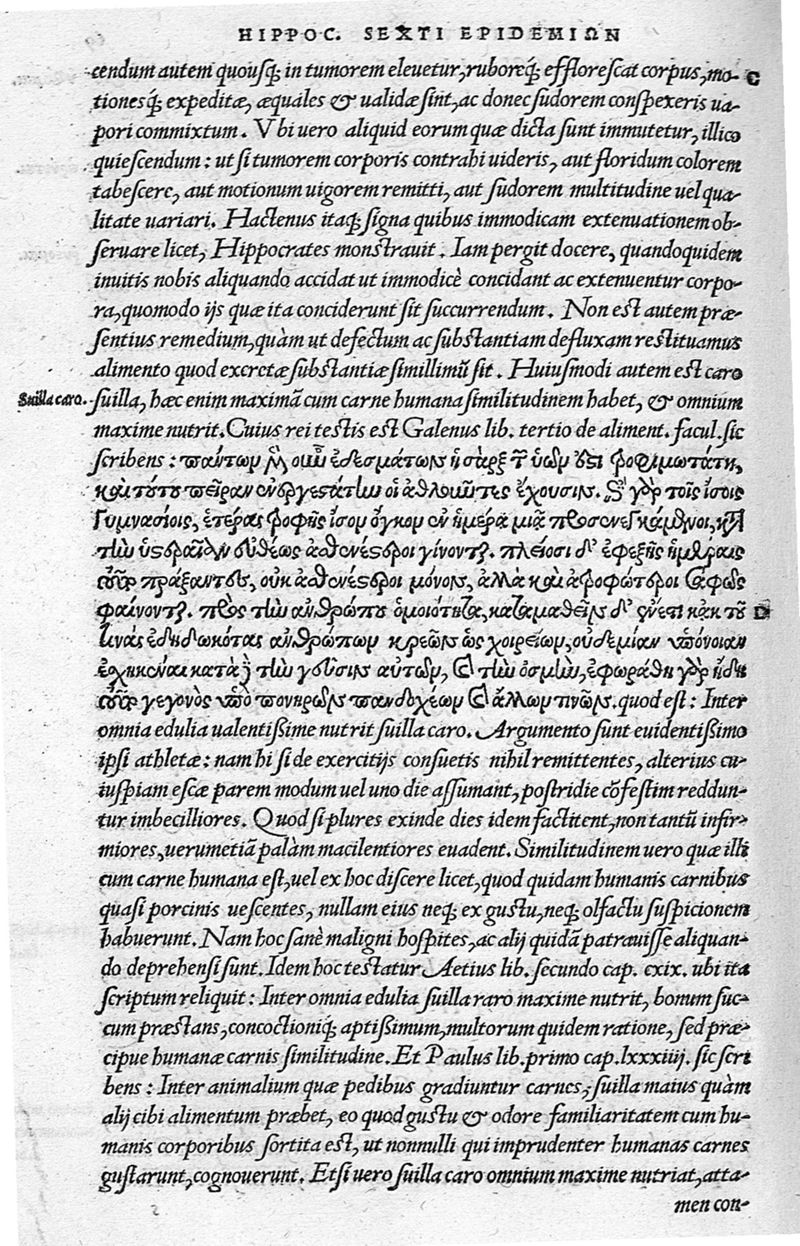 HIPPOC. SEXTI EPIDEMIΩN
cendum autem quousq; in tumorem eleuetur, ruboreq; efflorescat corpus, mo- C
tionesq; expeditæ, æquales & ualidæ sint, ac donec sudorem conspexeris ua-
pori commixtum. Vbi uero aliquid eorum quæ dicta sunt immutetur, illico
quiescendum: ut si tumorem corporis contrahi uideris, aut floridum colorem
tabescere, aut motionum uigorem remitti, aut sudorem multitudine uel qua-
litate uariari. Hactenus itaq; signa quibus immodicam extenuationem ob-
seruare licet, Hippocrates monstrauit. Iam pergit docere, quandoquidem
inuitis nobis aliquando accidat ut immodicè concidant ac extenuentur corpo-
ra, quomodo ijs quæ ita conciderunt sit succurrendum. Non est autem præ-
sentius remedium, quàm ut defectum ac substantiam defluxam restituamus
alimento quod excretæ substantiæ simillimũ sit. Huiusmodi autem est caro
Suilla caro. suilla, hæc enim maximã cum carne humana similitudinem habet, & omnium
maxime nutrit. Cuius rei testis est Galenus lib. tertio de aliment. facul. sic
scribens: πάντων μὲν οὖν ἐδεσμάτων ἡ σὰρξ τῶν ὑῶν ἐστὶ τροφιμωτάτη,
καὶ τούτου πεῖραν ἐναργεστάτην οἱ ἀθλοῦντες ἔχουσιν. ἐπὶ γὰρ τοῖς ἴσοις
γυμνασίοις, ἑτέρας τροφῆς ἴσον ὄγκον ἐν ἡμέρᾳ μιᾷ προσενεγκάμενοι, κατὰ
τὴν ὑστεραίαν εὐθέως ἀσθενέστεροι γίνονται. πλείοσι δ' ἐφεξῆς ἡμέραις
τοῦτο πράξαντες, οὐκ ἀσθενέστεροι μόνον, ἀλλὰ καὶ ἀτροφώτεροι σαφῶς
φαίνονται. πρὸς τὴν ἀνθρώπου ὁμοιότητα, καταμαθεῖν δ' ἔνεστι κἀκ τοῦ D
τινὰς ἐδηδωκότας ἀνθρώπων κρεῶν ὡς χοιρείων, οὐδεμίαν ὑπόνοιαν
ἐσχηκέναι κατά τε τὴν γεῦσιν αὐτῶν, καὶ τὴν ὀσμὴν, ἐφωράθη γὰρ ἤδη
τοῦτο γεγονὸς ὑπὸ πονηρῶν πανδοχέων καὶ ἄλλων τινῶν. quod est: Inter
omnia edulia ualentißime nutrit suilla caro. Argumento sunt euidentißimo
ipsi athletæ: nam hi si de exercitijs consuetis nihil remittentes, alterius cu-
iuspiam escæ parem modum uel uno die assumant, postridie cõfestim reddun-
tur imbecilliores. Quod si plures exinde dies idem factitent, non tantũ infir-
miores, uerumetiã palàm macilentiores euadent. Similitudinem uero quæ illi
cum carne humana est, uel ex hoc discere licet, quod quidam humanis carnibus
quasi porcinis uescentes, nullam eius neq; ex gustu, neq; olfactu suspicionem
habuerunt. Nam hoc sanè maligni hospites, ac alij quidã patrauisse aliquan-
do deprehensi sunt. Idem hoc testatur Aetius lib. secundo cap. cxix. ubi ita
scriptum reliquit: Inter omnia edulia suilla raro maxime nutrit, bonum suc-
cum præstans, concoctioniq; aptißimum, multorum quidem ratione, sed præ-
cipue humanæ carnis similitudine. Et Paulus lib. primo cap. lxxxiiij. sic scri
bens: Inter animalium quæ pedibus gradiuntur carnes, suilla maius quàm
alij cibi alimentum præbet, eo quod gustu & odore familiaritatem cum hu-
manis corporibus sortita est, ut nonnulli qui imprudenter humanas carnes
gustarunt, cognouerunt. Etsi uero suilla caro omnium maxime nutriat, atta-
men con-